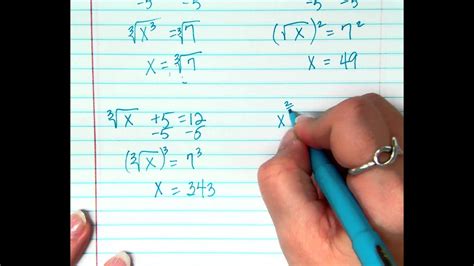 -5 -5
∛x³ = ∛7
x = ∛7
-5 -5
(√x)² = 7²
x = 49
∛x +5 = 12
-5 -5
(∛x)³ = 7³
x = 343
x²